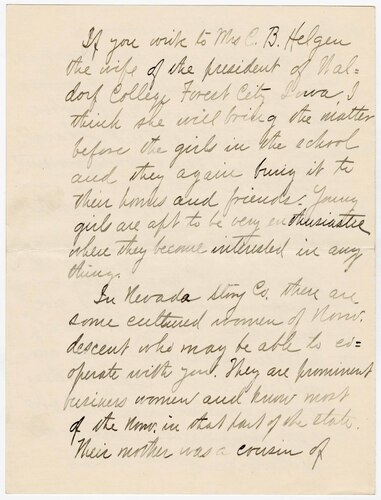 If you write to Mrs C. B. Helgen
the wife of the president of Wal-
dorf College Forest City Iowa, I
think she will bring the matter
before the girls in the school
and they again bring it to
their homes and friends. Young
girls are apt to be very enthusiastic
when they become interested in any
thing.
In Nevada Story Co. there are
some cultured women of Norw.
descent who may be able to co=
operate with you. They are prominent
business women and know most
of the Norw. in that part of the state.
Their mother was a cousin of